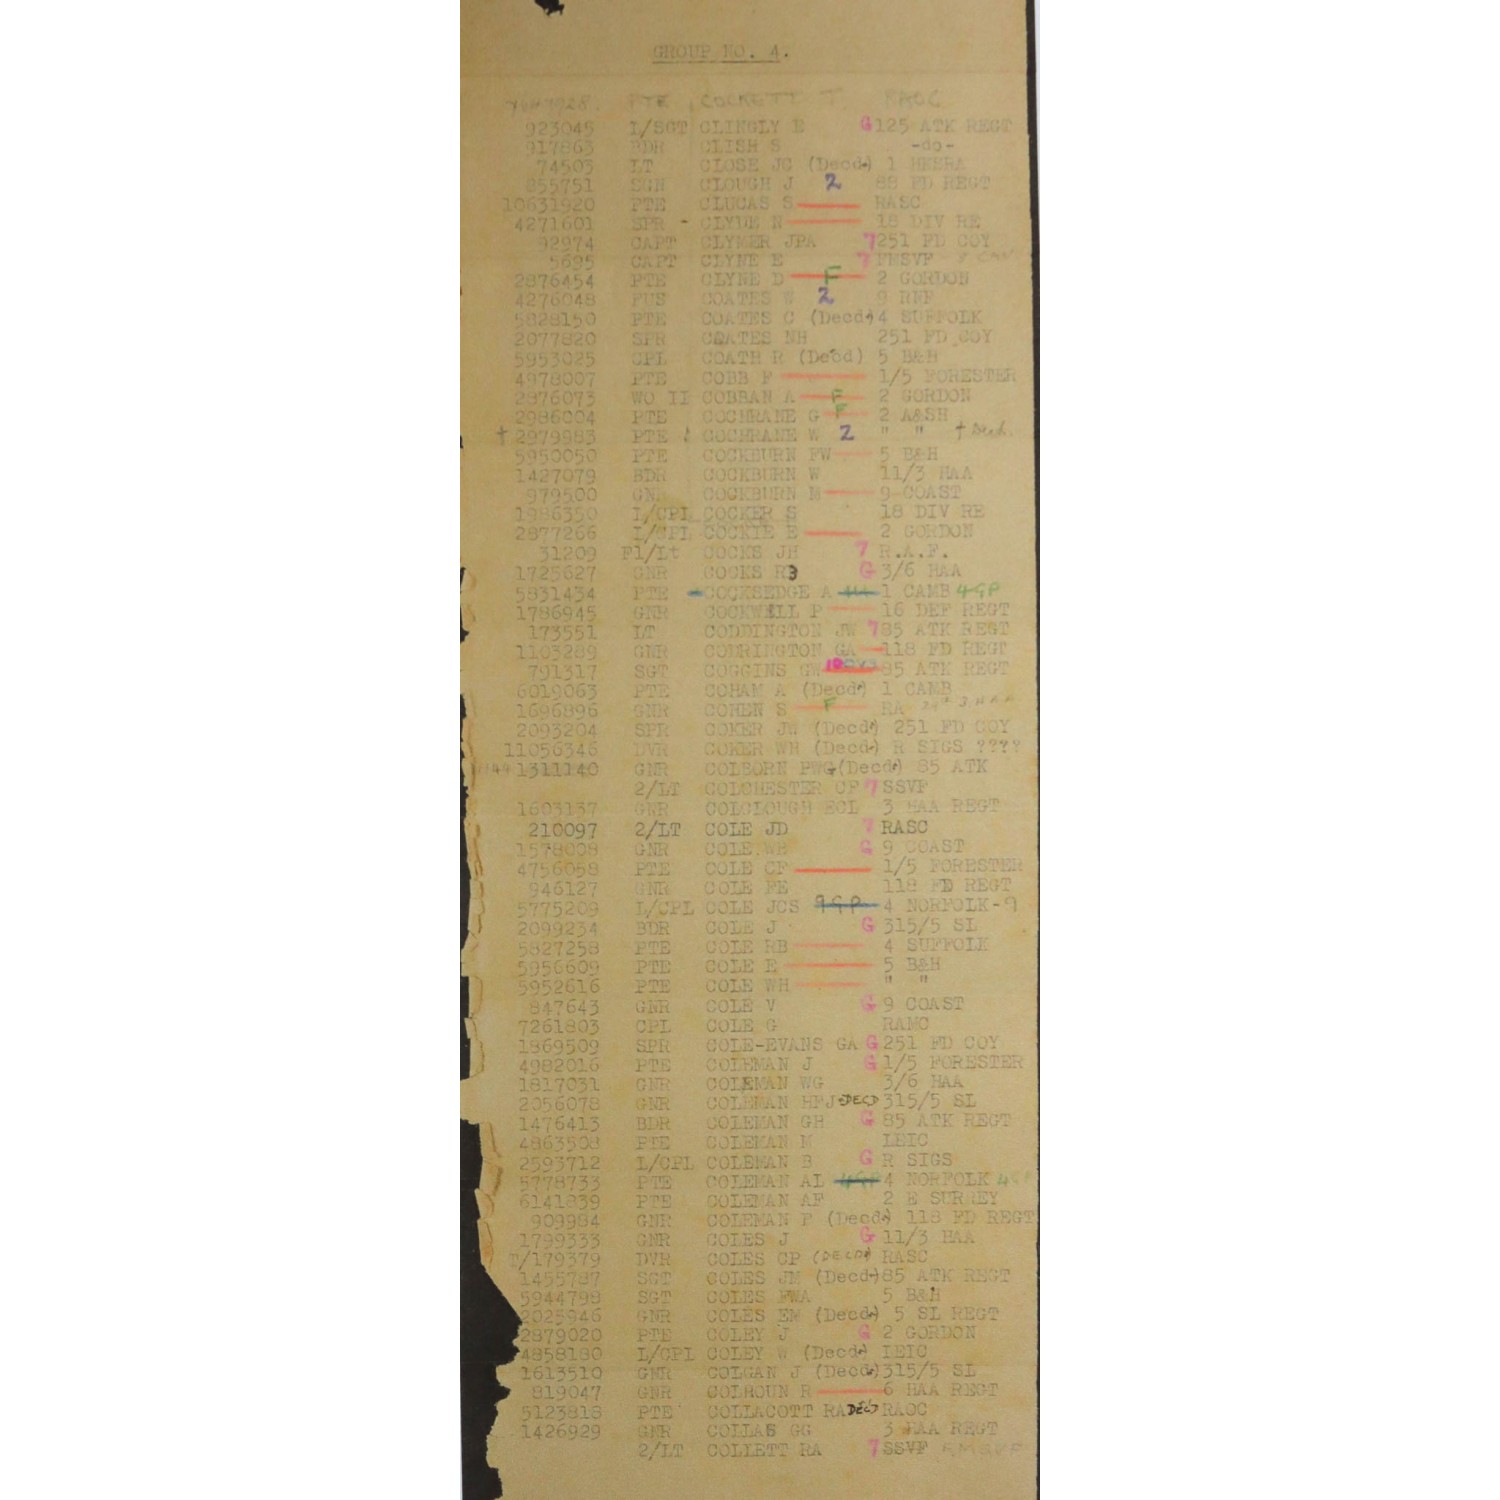 GROUP NO. 4.
PTE COCKETT T. RAOC
923045 L/SGT CLINGLY E G 125 ATK REGT
917863 BDR CLISH S -do-
74503 LT CLOSE JG (Decd.) 1 HKSRA
855751 SGN CLOUGH J 2 88 FD REGT
10631920 PTE CLUCAS S RASC
4271601 SPR - CLYDE N 18 DIV RE
92974 CAPT CLYMER JPA 7 251 FD COY
5695 CAPT CLYNE E 7 FMSVF
2876454 PTE CLYNE D F 2 GORDON
4276048 FUS COATES W 2 9 RNF
5828150 PTE COATES C (Decd) 4 SUFFOLK
2077820 SPR COATES NH 251 FD COY
5953025 CPL COATH R (Decd) 5 B&H
4978007 PTE COBB F 1/5 FORESTER
2876073 WO II COBBAN A F 2 GORDON
2986004 PTE COCHRANE G F 2 A&SH
† 2979983 PTE COCHRANE W 2 " " † Decd.
5950050 PTE COCKBURN FW 5 B&H
1427079 BDR COCKBURN W 11/3 HAA
979500 GNR COCKBURN M 9 COAST
1986350 L/CPL COCKER S 18 DIV RE
2877266 L/CPL COCKIE E 2 GORDON
31209 Fl/Lt COCKS JH 7 R.A.F.
1725627 GNR COCKS R3 G 3/6 HAA
5831434 PTE COCKSEDGE A 1 CAMB 4 GP
1786945 GNR COCKWELL P 16 DEF REGT
173551 LT CODDINGTON JW 7 85 ATK REGT
1103289 GNR CODRINGTON GA 118 FD REGT
791317 SGT COGGINS GW 85 ATK REGT
6019063 PTE COHAM A (Decd) 1 CAMB
1696896 GNR COHEN S F RA
2093204 SPR COKER JW (Decd) 251 FD COY
11056346 DVR COKER WH (Decd) R SIGS ????
1311140 GNR COLBORN PWG (Decd) 85 ATK
2/LT COLCHESTER CF 7 SSVF
1603137 GNR COLCLOUGH ECL 3 HAA REGT
210097 2/LT COLE JD 7 RASC
1578008 GNR COLE WH G 9 COAST
4756058 PTE COLE CF 1/5 FORESTER
946127 GNR COLE FE 118 FD REGT
5775209 L/CPL COLE JCS 9 GP 4 NORFOLK-9
2099234 BDR COLE J G 315/5 SL
5827258 PTE COLE RB 4 SUFFOLK
5956609 PTE COLE E 5 B&H
5952616 PTE COLE WH " "
847643 GNR COLE V G 9 COAST
7261803 CPL COLE G RAMC
1869509 SPR COLE-EVANS GA G 251 FD COY
4982016 PTE COLEMAN J G 1/5 FORESTER
1817031 GNR COLEMAN WG 3/6 HAA
2056078 GNR COLEMAN HFJ-DECD 315/5 SL
1476413 BDR COLEMAN GH G 85 ATK REGT
4863508 PTE COLEMAN M LEIC
2593712 L/CPL COLEMAN B G R SIGS
5778733 PTE COLEMAN AL 4 GP 4 NORFOLK 4 GP
6141839 PTE COLEMAN AF 2 E SURREY
909984 GNR COLEMAN F (Decd) 118 FD REGT
1799333 GNR COLES J G 11/3 HAA
T/179379 DVR COLES CP (DECD) RASC
1455787 SGT COLES JM (Decd) 85 ATK REGT
5944798 SGT COLES FWA 5 B&H
2025946 GNR COLES EM (Decd) 5 SL REGT
2879020 PTE COLEY J G 2 GORDON
4858180 L/CPL COLEY W (Decd) LEIC
1613510 GNR COLGAN J (Decd) 315/5 SL
819047 GNR COLHOUN R 6 HAA REGT
5123818 PTE COLLACOTT RA DECD RAOC
1426929 GNR COLLAS GG 3 HAA REGT
2/LT COLLETT RA 7 SSVF FMSVF